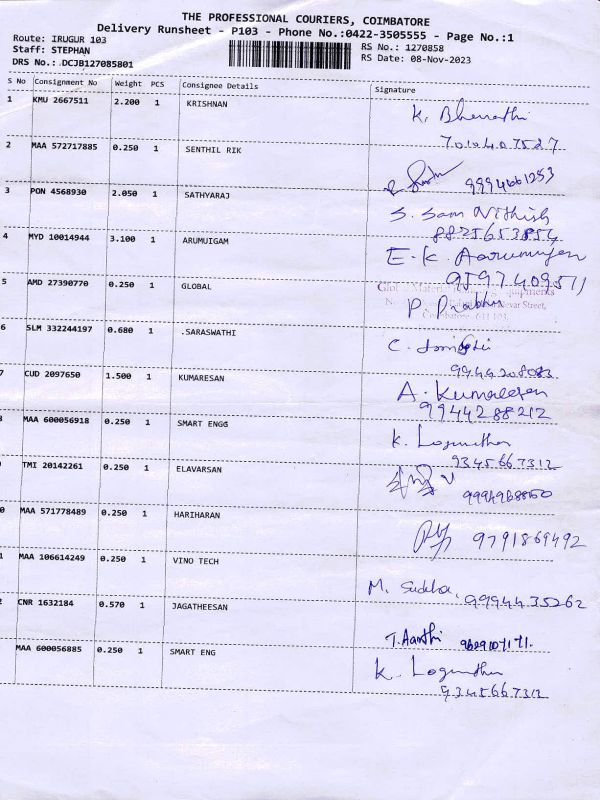 THE PROFESSIONAL COURIERS, COIMBATORE
Delivery Runsheet - P103 - Phone No.:0422-3505555 - Page No.:1
Route: IRUGUR 103
RS No.: 1270858
Staff: STEPHAN
RS Date: 08-Nov-2023
DRS No.: DCJB127085801
S No Consignment No Weight PCS Consignee Details Signature
1 KMU 2667511 2.200 1 KRISHNAN K. Bharathi
7010407527
2 MAA 572717885 0.250 1 SENTHIL RIK
9994661253
3 PON 4568930 2.050 1 SATHYARAJ S. Sam Nithish
8825653854
4 MYD 10014944 3.100 1 ARUMUIGAM E.K Aarumugam
9597409511
5 AMD 27390770 0.250 1 GLOBAL P Prabhu
6 SLM 332244197 0.680 1 .SARASWATHI C.
9944208083
7 CUD 2097650 1.500 1 KUMARESAN A. Kumaresan
9944288212
MAA 600056918 0.250 1 SMART ENGG K. Logunathan
9345667312
TMI 20142261 0.250 1 ELAVARSAN
9994968850
0 MAA 571778489 0.250 1 HARIHARAN 9791869492
1 MAA 106614249 0.250 1 VINO TECH M. Sudha, 9994435262
2 CNR 1632184 0.570 1 JAGATHEESAN T. Aarthi 9629107171.
MAA 600056885 0.250 1 SMART ENG K. Logunathan
9345667312